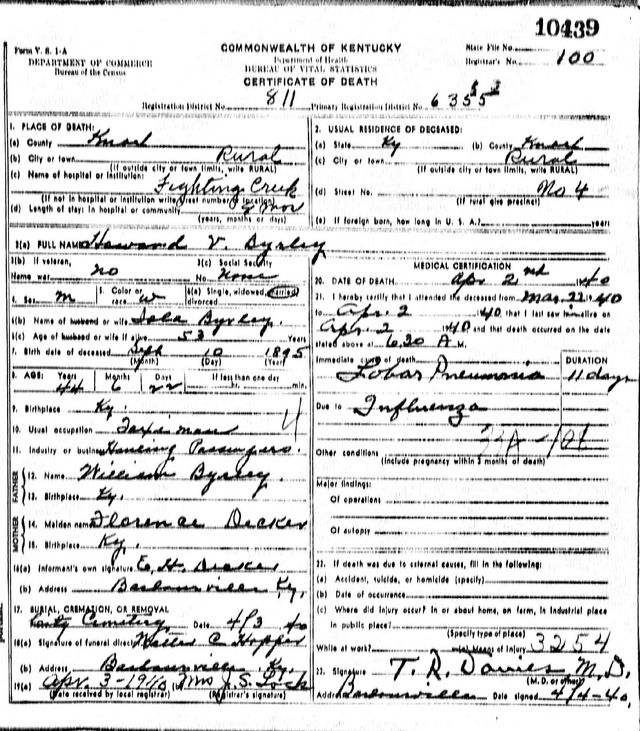 10439
Form V. S. 1-A
DEPARTMENT OF COMMERCE
Bureau of the Census
COMMONWEALTH OF KENTUCKY
Department of Health
BUREAU OF VITAL STATISTICS
CERTIFICATE OF DEATH
State File No.
Registrar's No. 100
Registration District No. 811 Primary Registration District No. 6355
1. PLACE OF DEATH:
(a) County Knox
(b) City or town Rural
(If outside city or town limits, write RURAL)
(c) Name of hospital or institution:
Fighting Creek
(If not in hospital or institution write street number or location)
(d) Length of stay: In hospital or community
(years, months or days)
2. USUAL RESIDENCE OF DECEASED:
(a) State Ky (b) County Knox
(c) City or town Rural
(If outside city or town limits, write RURAL)
(d) Street No. No 4
(If rural give precinct)
(e) If foreign born, how long in U. S. A.? years
3(a) FULL NAME Howard V. Byrley
3(b) If veteran,
Name war no
3(c) Social Security
No. None
4. Sex M 5. Color or race W 6(a) Single, widowed, married, divorced
6(b) Name of husband or wife Iola Byrley.
6(c) Age of husband or wife if alive 53 Years
7. Birth date of deceased Sept 10 1895
(Month) (Day) (Year)
8. AGE: Years Months Days If less than one day
44 6 22 hr. min.
9. Birthplace Ky.
10. Usual occupation Taximan
4
11. Industry or business Hauling Passengers.
FATHER
12. Name William Byrley
13. Birthplace Ky.
MOTHER
14. Maiden name Florence Decker
15. Birthplace Ky.
16(a) Informant's own signature E. H. Decker
(b) Address Barbourville Ky.
17. BURIAL, CREMATION, OR REMOVAL
Cemetery Date 4/3 40
18(a) Signature of funeral director Walter C Hopper
(b) Address Barbourville Ky.
19(a) Apr. 3-1940 (b) Mrs J. S. Lock
(Date received by local registrar) (Registrar's signature)
MEDICAL CERTIFICATION
20. DATE OF DEATH Apr 2nd 1940
21. I hereby certify that I attended the deceased from Mar. 22 1940
to Apr. 2 1940, that I last saw him alive on
Apr. 2 1940 and that death occurred on the date
stated above at 6:20 A M.
Immediate cause of death DURATION
Lobar Pneumonia 11 days
Due to Influenza
Other conditions
(Include pregnancy within 3 months of death)
Major findings:
Of operations
Of autopsy
22. If death was due to external causes, fill in the following:
(a) Accident, suicide, or homicide (specify)
(b) Date of occurrence
(c) Where did injury occur? In or about home, on farm, in industrial place
In public place?
(Specify type of place)
While at work? (e) Means of Injury 3254
23. Signature T. R. Davies M. D.
(M. D. or other)
Address Barbourville Date signed 4/4-40,